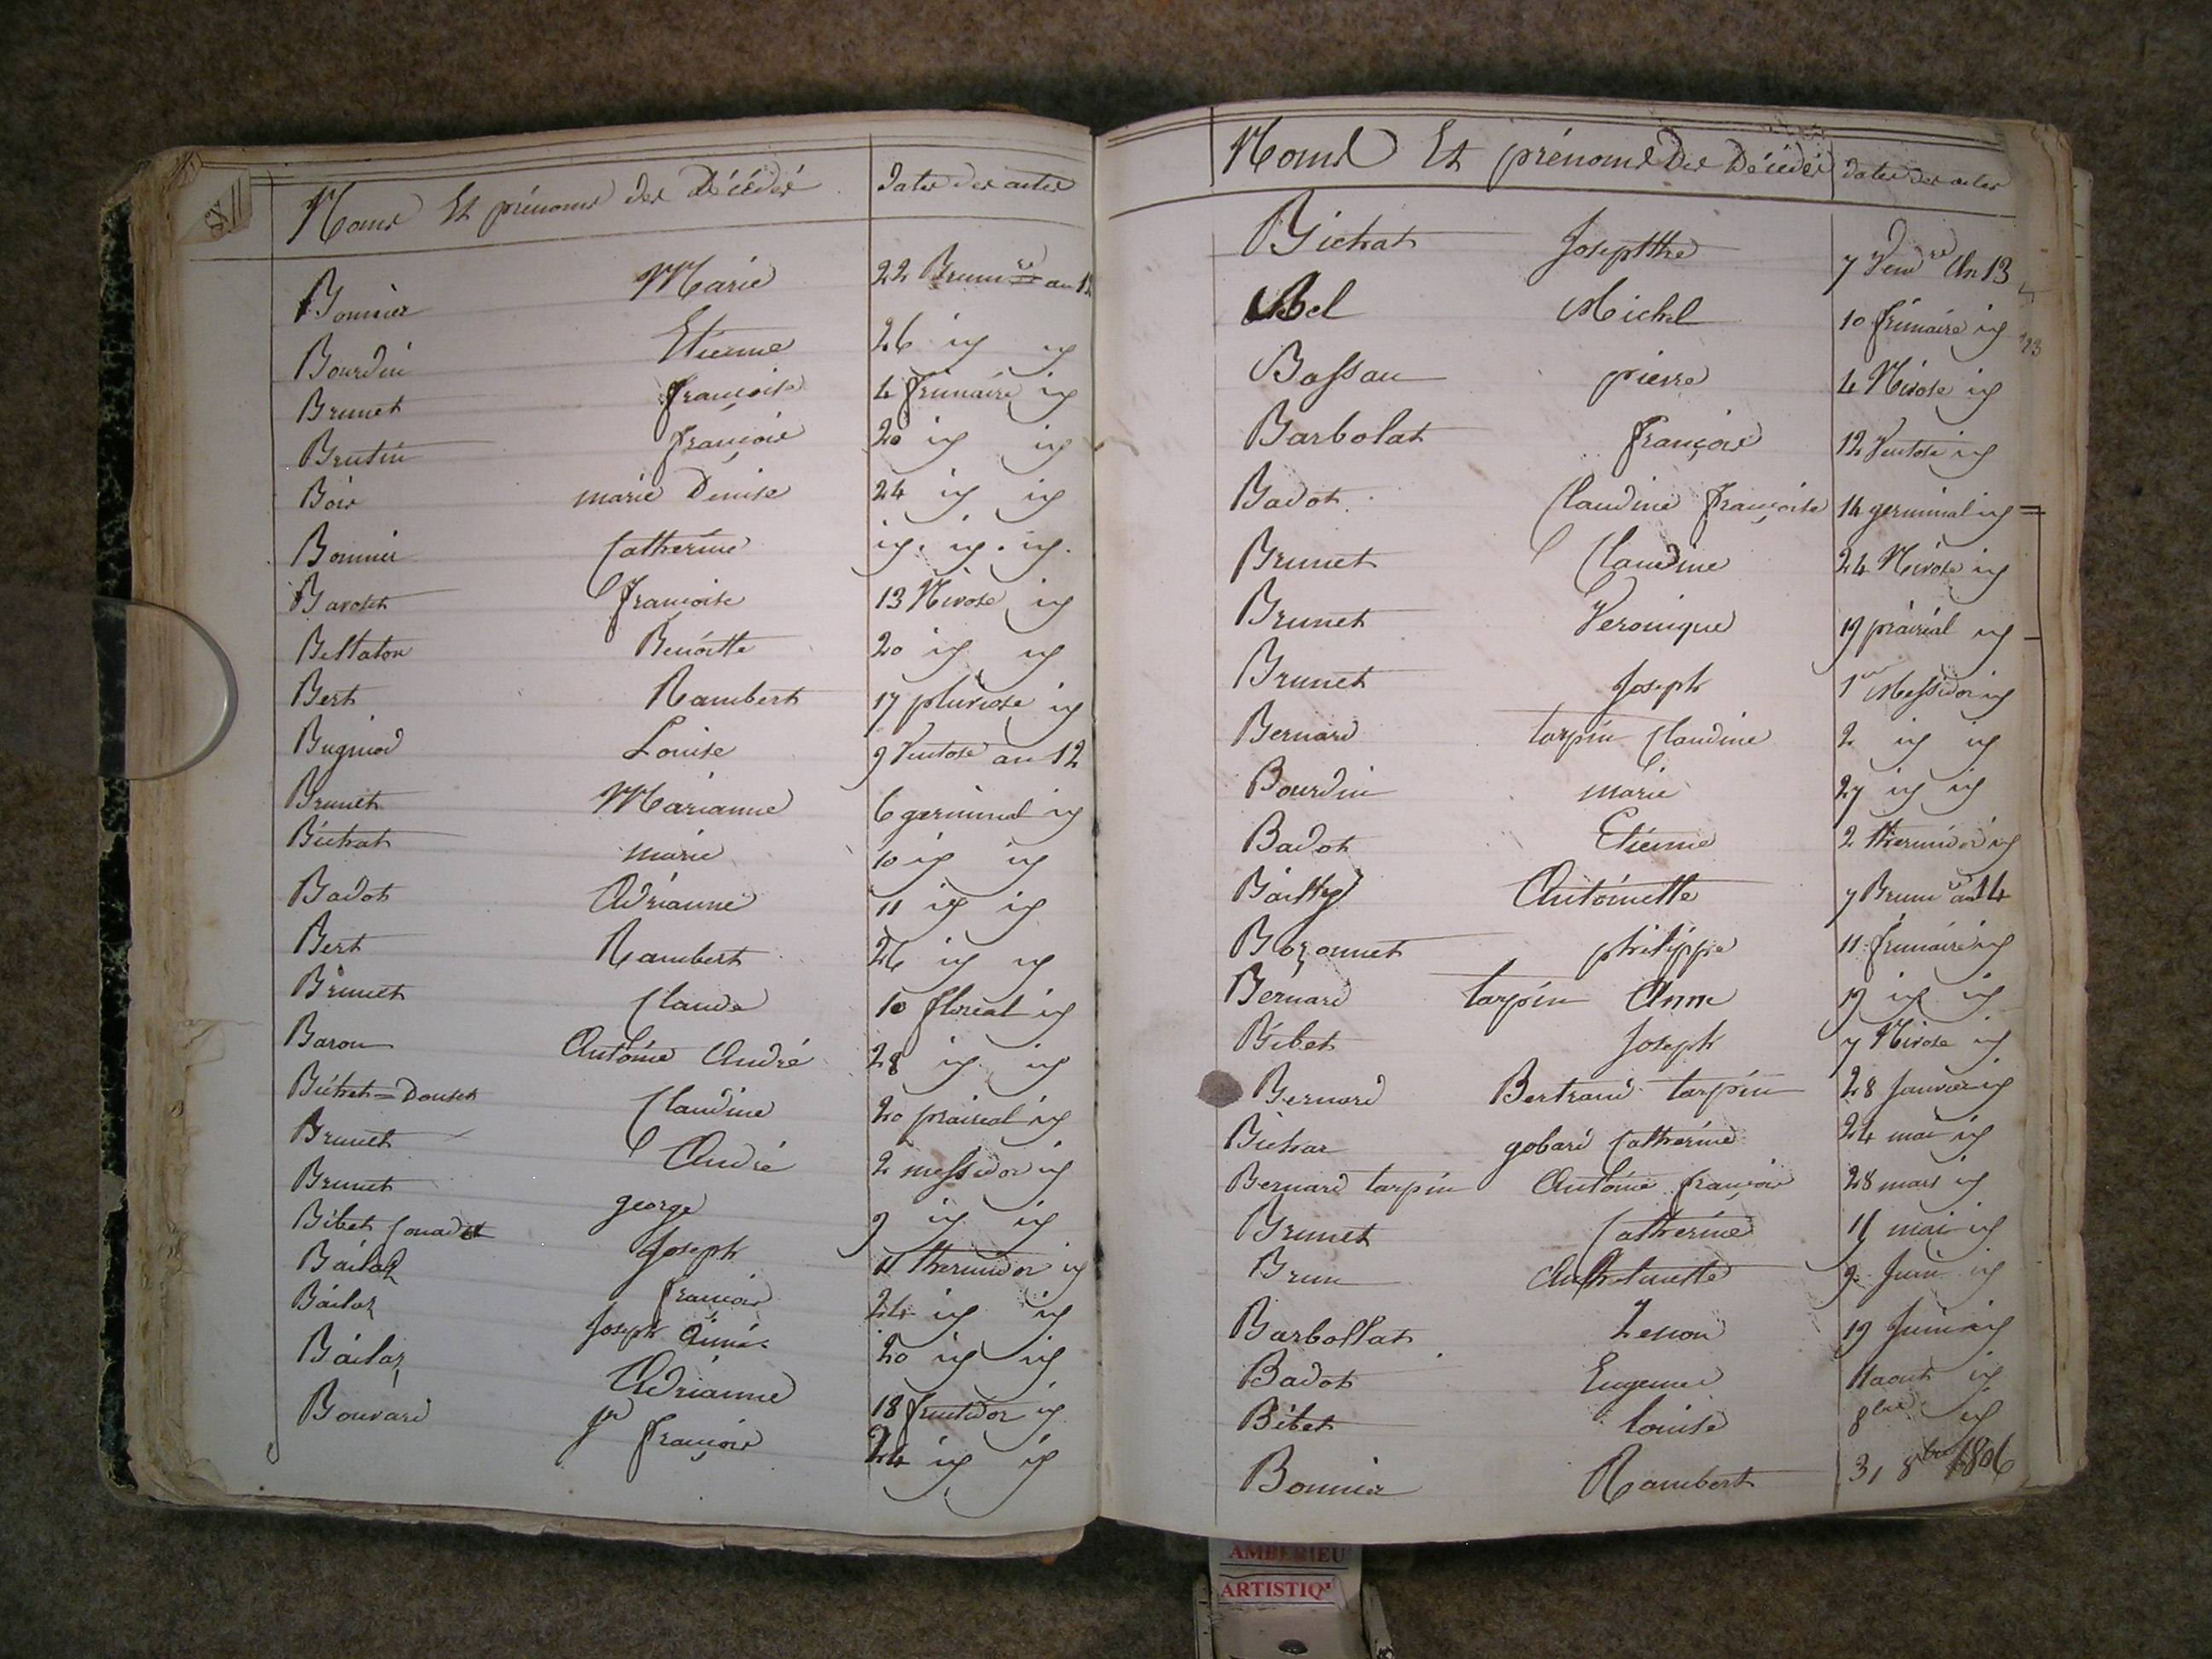 Noms Et prénoms des Décédés dates des actes
Bonnier Marie 22 Brum re an 12
Bourdin Etienne 26 id id
Brunet françoise 4 frimaire id
Brutin françois 20 id id
Bois marie Denise 24 id id
Bonnier Catherine id. id. id.
françoise 13 Nivose id
Benoitte 20 id id
Bert Rambert 17 pluviose id
Bugniod Louise 9 Ventose an 12
Brunet Marianne 6 germinal id
Bichat marie 10 id id
Badot Adrianne 11 id id
Bert Rambert 26 id id
Brunet Claude 10 floreal id
Baron Antoine André 28 id id
Claudine 20 prairial id
Brunet André 2 messidor id
Brunet george 9 id id
Bibet Joseph 11 thermidor id
Bailaz françois 24 id id
Bailaz Joseph Aimé 20 id id
Bailaz Adrianne 18 fructidor id
Bouvard françois 24 id id
Noms Et prénoms Des Décédés dates des actes
Bichat Josepthe 7 Vend re An 13
Abel Michel 10 frimaire id
Bassau pierre 4 Nivose id
Barbolat françois 12 Ventose id
Badot Claudine françoise 14 germinal id
Brunet Claudine 24 Nivose id
Brunet Veronique 19 prairial id
Brunet Joseph 1er Messidor id
Bernard tarpin Claudine 2 id id
Bourdin marie 27 id id
Badot Etienne 2 thermidor id
Bailly Antoinette 7 Brum re an 14
Bozonnet philippe 11 frimaire id
Bernard tarpin Anne 19 id id
Bibet Joseph 7 Nivose id
Bernard Bertrand tarpin 28 Janvier id
Bichat gobard Catherine 24 mai id
Bernard tarpin Antoine françois 28 mars id
Brunet Catherine 11 mai id
Brun 9 Juin id
Barbollat Zenon 19 Juin id
Badot Eugenne 11 aout id
Bibet louise 8bre id
Bonnier Rambert 31 8bre 1806
AMBERIEU
ARTISTIQ